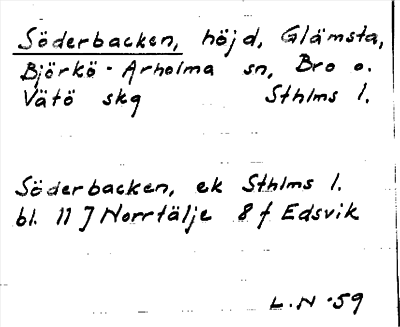 Söderbacken, höjd, Glämsta,
Björkö-Arholma sn, Bro o.
Vätö skg Sthlms l.
Söderbacken, ek Sthlms l.
bl. 11 J Norrtälje 8 f Edsvik
L.N -59